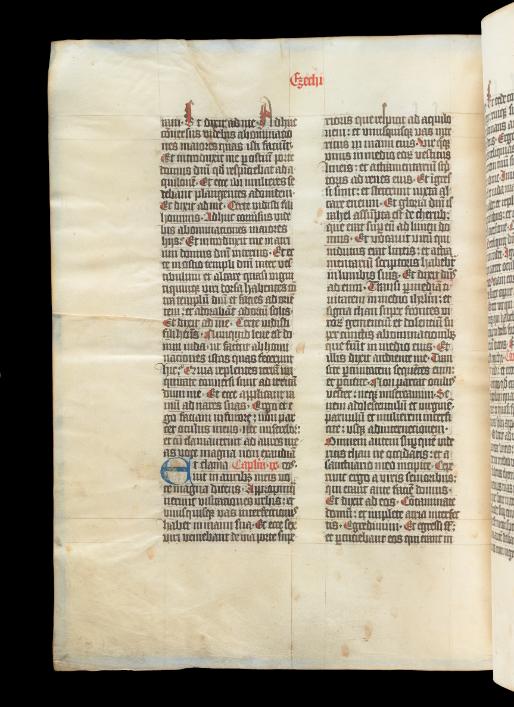 Ezechi
ram. Et dixit ad me. Adhuc
cōversus videbis abominatio
nes maiores quas isti faciūt.
Et introduxit me p ostiū porte
domus dn̄i qd̄ respiciebat ad a
quilonē. Et ecce ibi mulieres se
debant plangentes adonidem.
Et dixit ad me. Certe vidisti fili
hominis. Adhuc cōversus vide
bis abominationes maiores
hijs. Et introduxit me in atri
um domus dn̄i interius. Et ec
ce in ostio templi dn̄i inter ves
tibulum et altare quasi viginti
quinque viri dorsa habentes cō
tra templū dn̄i et facies ad oriē
tem: et adorabāt ad ortū solis.
Et dixit ad me. Certe vidisti
fili hois. Nunquid leve est do
mui iuda. ut facerēt abhomi
nationes istas quas fecerunt
hic: Quia replentes terrā ini
quitate conversi sunt ad irritā
dum me. Et ecce applicant ra
mū ad nares suas. Ergo et e
go faciam in furore: non par
cet oculus meus: nec miserebor:
et cū clamaverint ad aures me
as voce magna non exaudiā
Et clama Caplm ix. eos.
vit in auribꝰ meis vo
ce magna dicens. Appropīq̄
verunt visitationes urbis: et
unusquisqꝫ vas interfectionis
habet in manu sua. Et ecce sex
viri veniebant de via porte supe
rioris que respicit ad aquilo
nem: et uniuscuiusqꝫ vas inte
ritus in manu eius. Vir qꝫ
unus in medio eoꝝ vestitus
lineis: et atramentariū scp̄
toris ad renes eius. Et īgres
si sunt: et steterunt iuxta al
tare ereum. Et gloria dn̄i is
rahel assūpta est de cherub:
que erat suꝑ eū ad limen do
mus. Et vocavit virū qui
indutus erat lineis: et atra
mentariū scriptoris habebat
in lumbis suis. Et dixit dn̄s
ad eum. Transi ꝑ mediā ci
vitatem in medio ihrl̄m: et
signa thau suꝑ frontes vi
roꝝ gementiū et dolentiū suꝑ
cunctis abominationibꝫ
que fiūt in medio eius. Et
illis dixit audiente me. Tran
site ꝑ civitatem sequētes eum:
et ꝑcutite. Non parcat oculꝰ
vester: neqꝫ misereamini. Se
nem adolescentulū et virginē.
parvulū et mulieres interfi
cite: usqꝫ ad internecionem.
Omnem autem suꝑ quē vide
ritis thau ne occidatis: et a
sanctuario meo incipite. Cepe
runt ergo a viris senioribus:
qui erant ante faciē domus.
Et dixit ad eos. Cōtaminate
domū: et implete atria interfec
tis. Egredimini. Et egressi sūt:
et ꝑcutiebant eos qui erant in